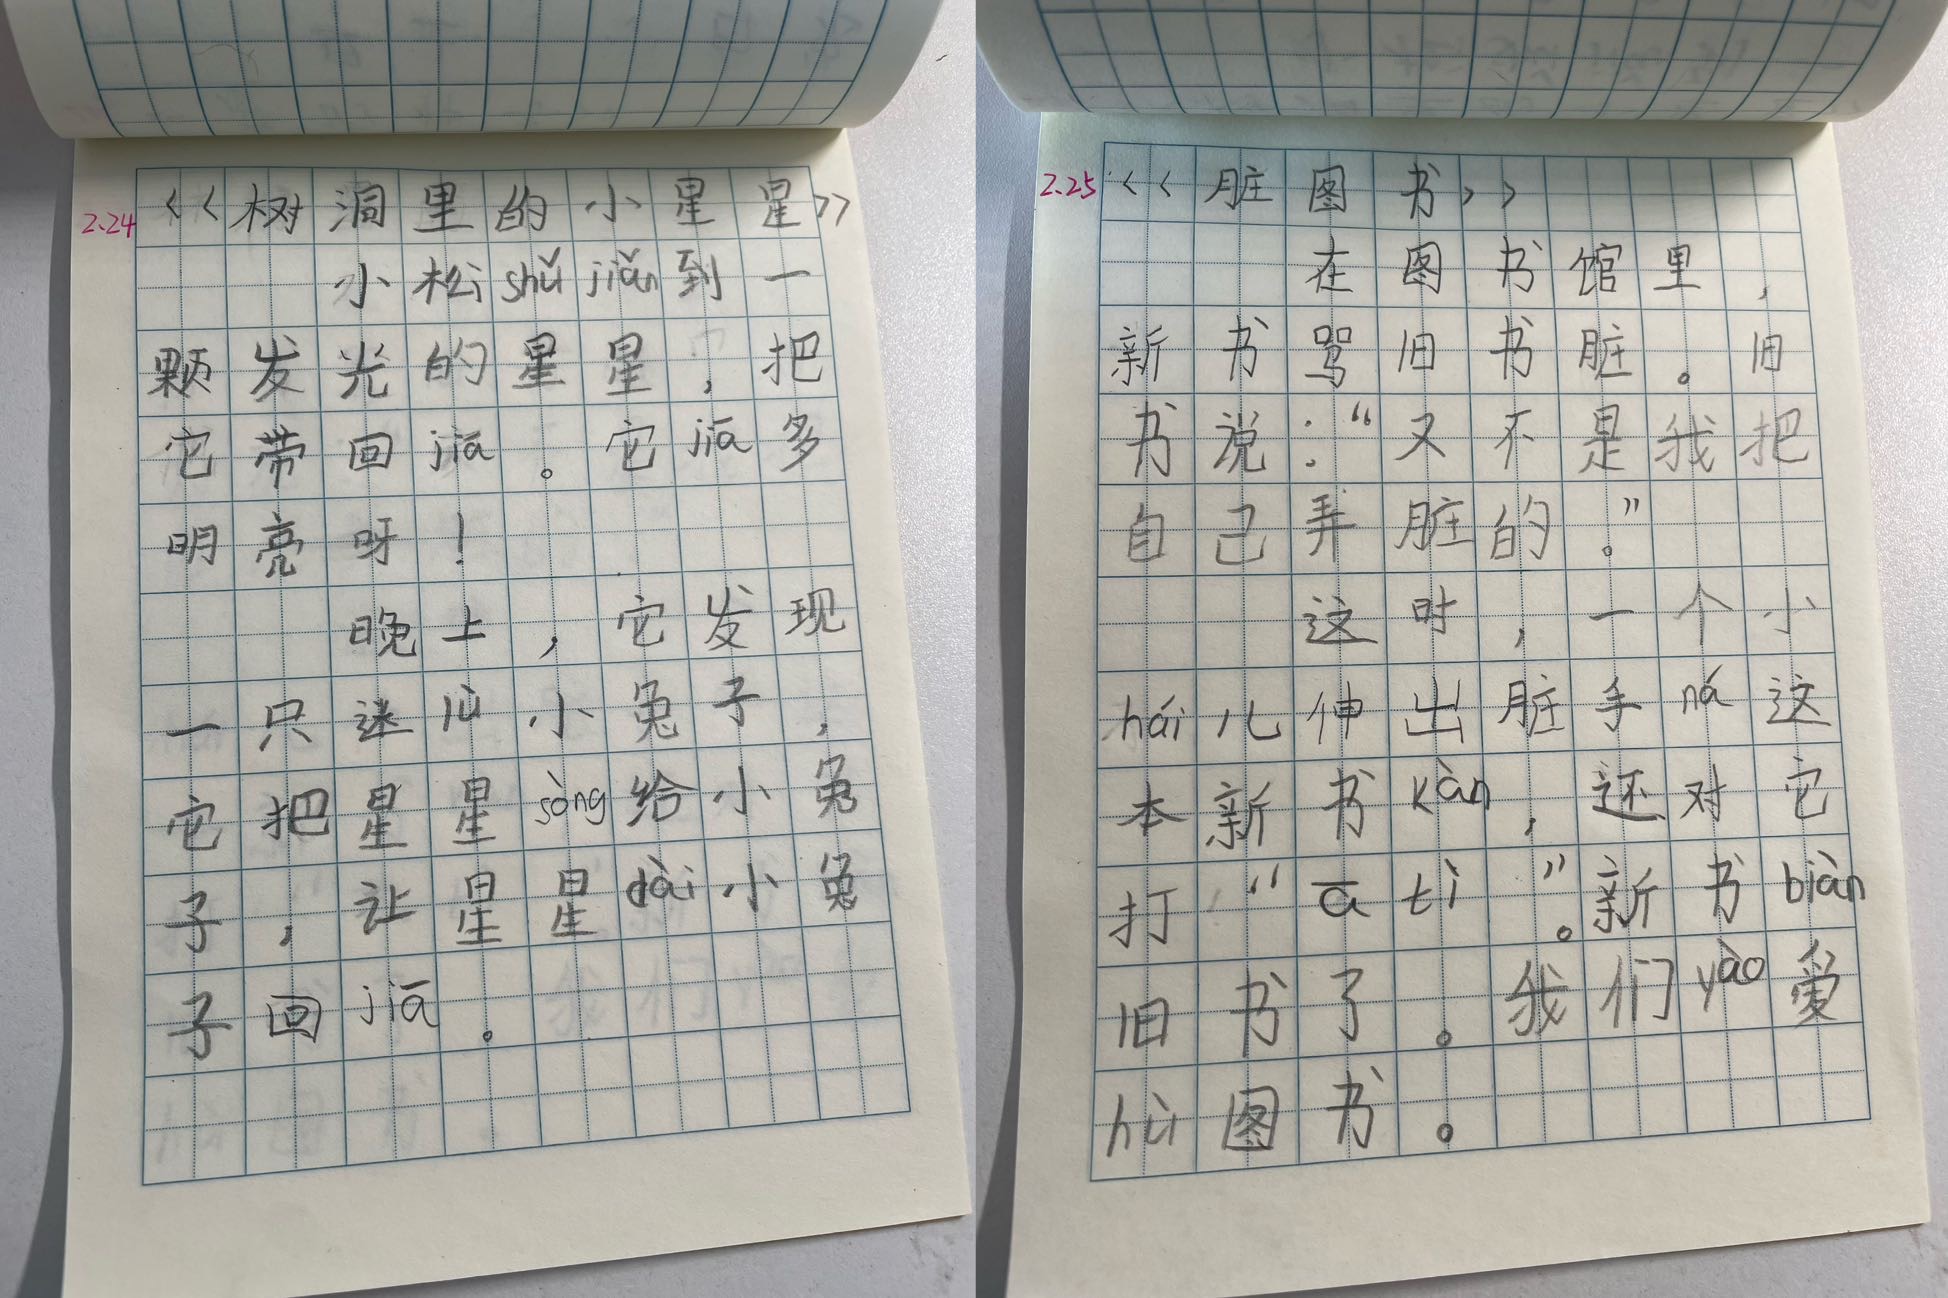 2.24
《树洞里的小星星》
小松shǔ jiǎn到一
颗发光的星星，把
它带回jiā。它jiā多
明亮呀！
晚上，它发现
一只迷lù小兔子，
它把星星sòng给小兔
子，让星星dài小兔
子回jiā。
2.25
《脏图书》
在图书馆里，
新书骂旧书脏。旧
书说：“又不是我把
自己弄脏的。”
这时，一个小
hái儿伸出脏手ná这
本新书kàn，还对它
打“ā tì”。新书biàn
旧书了。我们yào爱
hù图书。